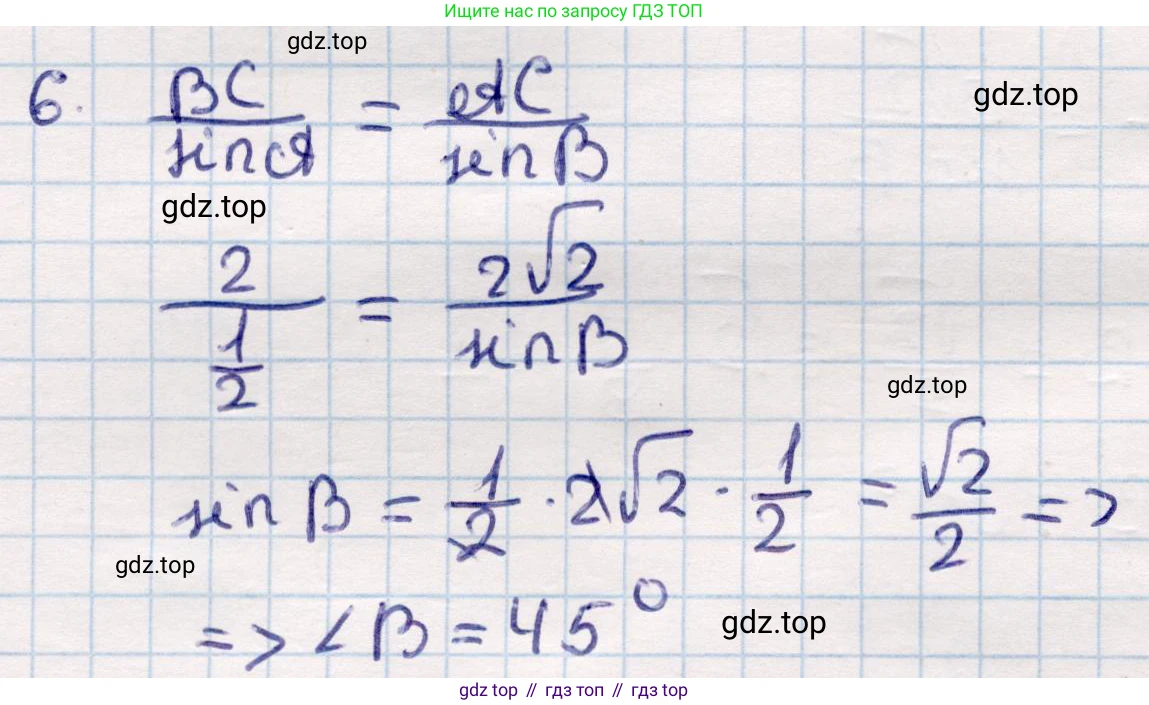 Ищите нас по запросу ГДЗ ТОП
gdz.top
gdz.top
6. BC/sin A = AC/sin B
gdz.top
2/(1/2) = 2√2/sin B
gdz.top
sin B = 1/2 · 2√2 · 1/2 = √2/2 =>
gdz.top
=> ∠B = 45°
gdz.top
gdz top // гдз топ // gdz top